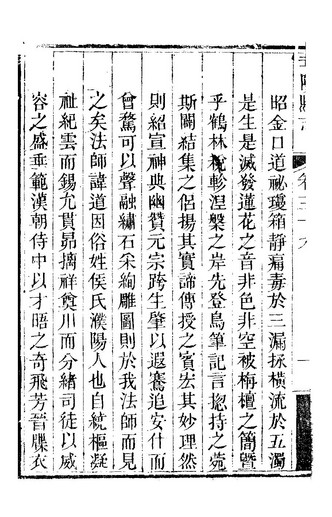 昭金口道祕瓊箱靜痛毒於三漏拯橫流於五濁
是生是滅發蓮花之音非色非空被栴檀之簡曁
乎鶴林稅軫湼槃之岸先登鳥筆記言揔持之菀
斯闢結集之侶揚其實諦傳授之賓宏其妙理然
則紹宣神典幽贊元宗跨生肇以遐騫追安什而
曾騖可以聲融繡石采絢雕圖則於我法師而見
之矣法師諱道因俗姓侯氏濮陽人也自統樞凝
祉紀雲而錫允貫昴摛祥奠川而分緒司徒以威
容之盛垂範漢朝侍中以才晤之奇飛芳晉牒衣